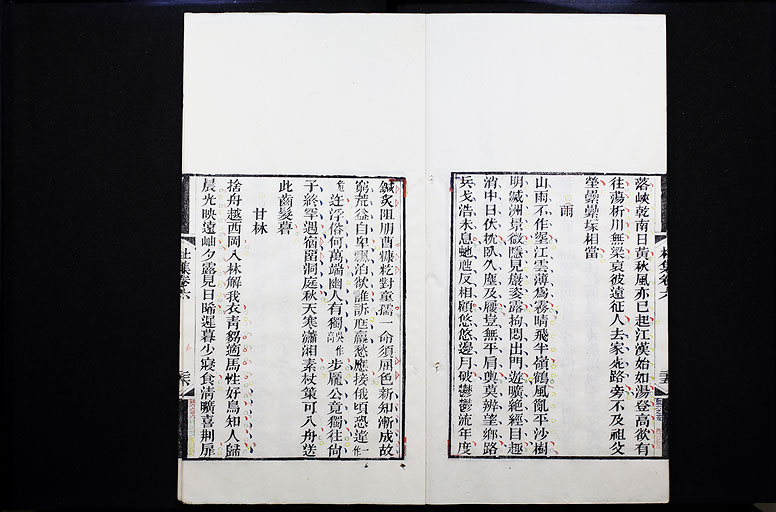 落峽乾南日黃秋風亦已起江漢始如湯登高欲有
往蕩析川無梁哀彼遠征人去家死路旁不及祖父
塋纍纍塚相當
雨
山雨不作埿江雲薄為霧晴飛半嶺鶴風亂平沙樹
明滅洲景微隱見巖姿露拘悶出門遊曠絕經目趣
消中日伏枕臥久塵及屨豈無平肩輿莫辨望鄉路
兵戈浩未息蛇虺反相顧悠悠邊月破鬱鬱流年度
鍼灸阻朋曹糠籺對童孺一命須屈色新知漸成故
窮荒益自卑飄泊欲誰訴尫羸愁應接俄頃恐違一作
迕浮俗何萬端幽人有獨步龐公竟獨往尚
子終罕遇宿留洞庭秋天寒瀟湘素杖策可入舟送
此齒髮暮
甘林
捨舟越西岡入林解我衣青芻適馬性好鳥知人歸
晨光映遠岫夕露見日晞遲暮少寢食清曠喜荊扉
杜集卷六